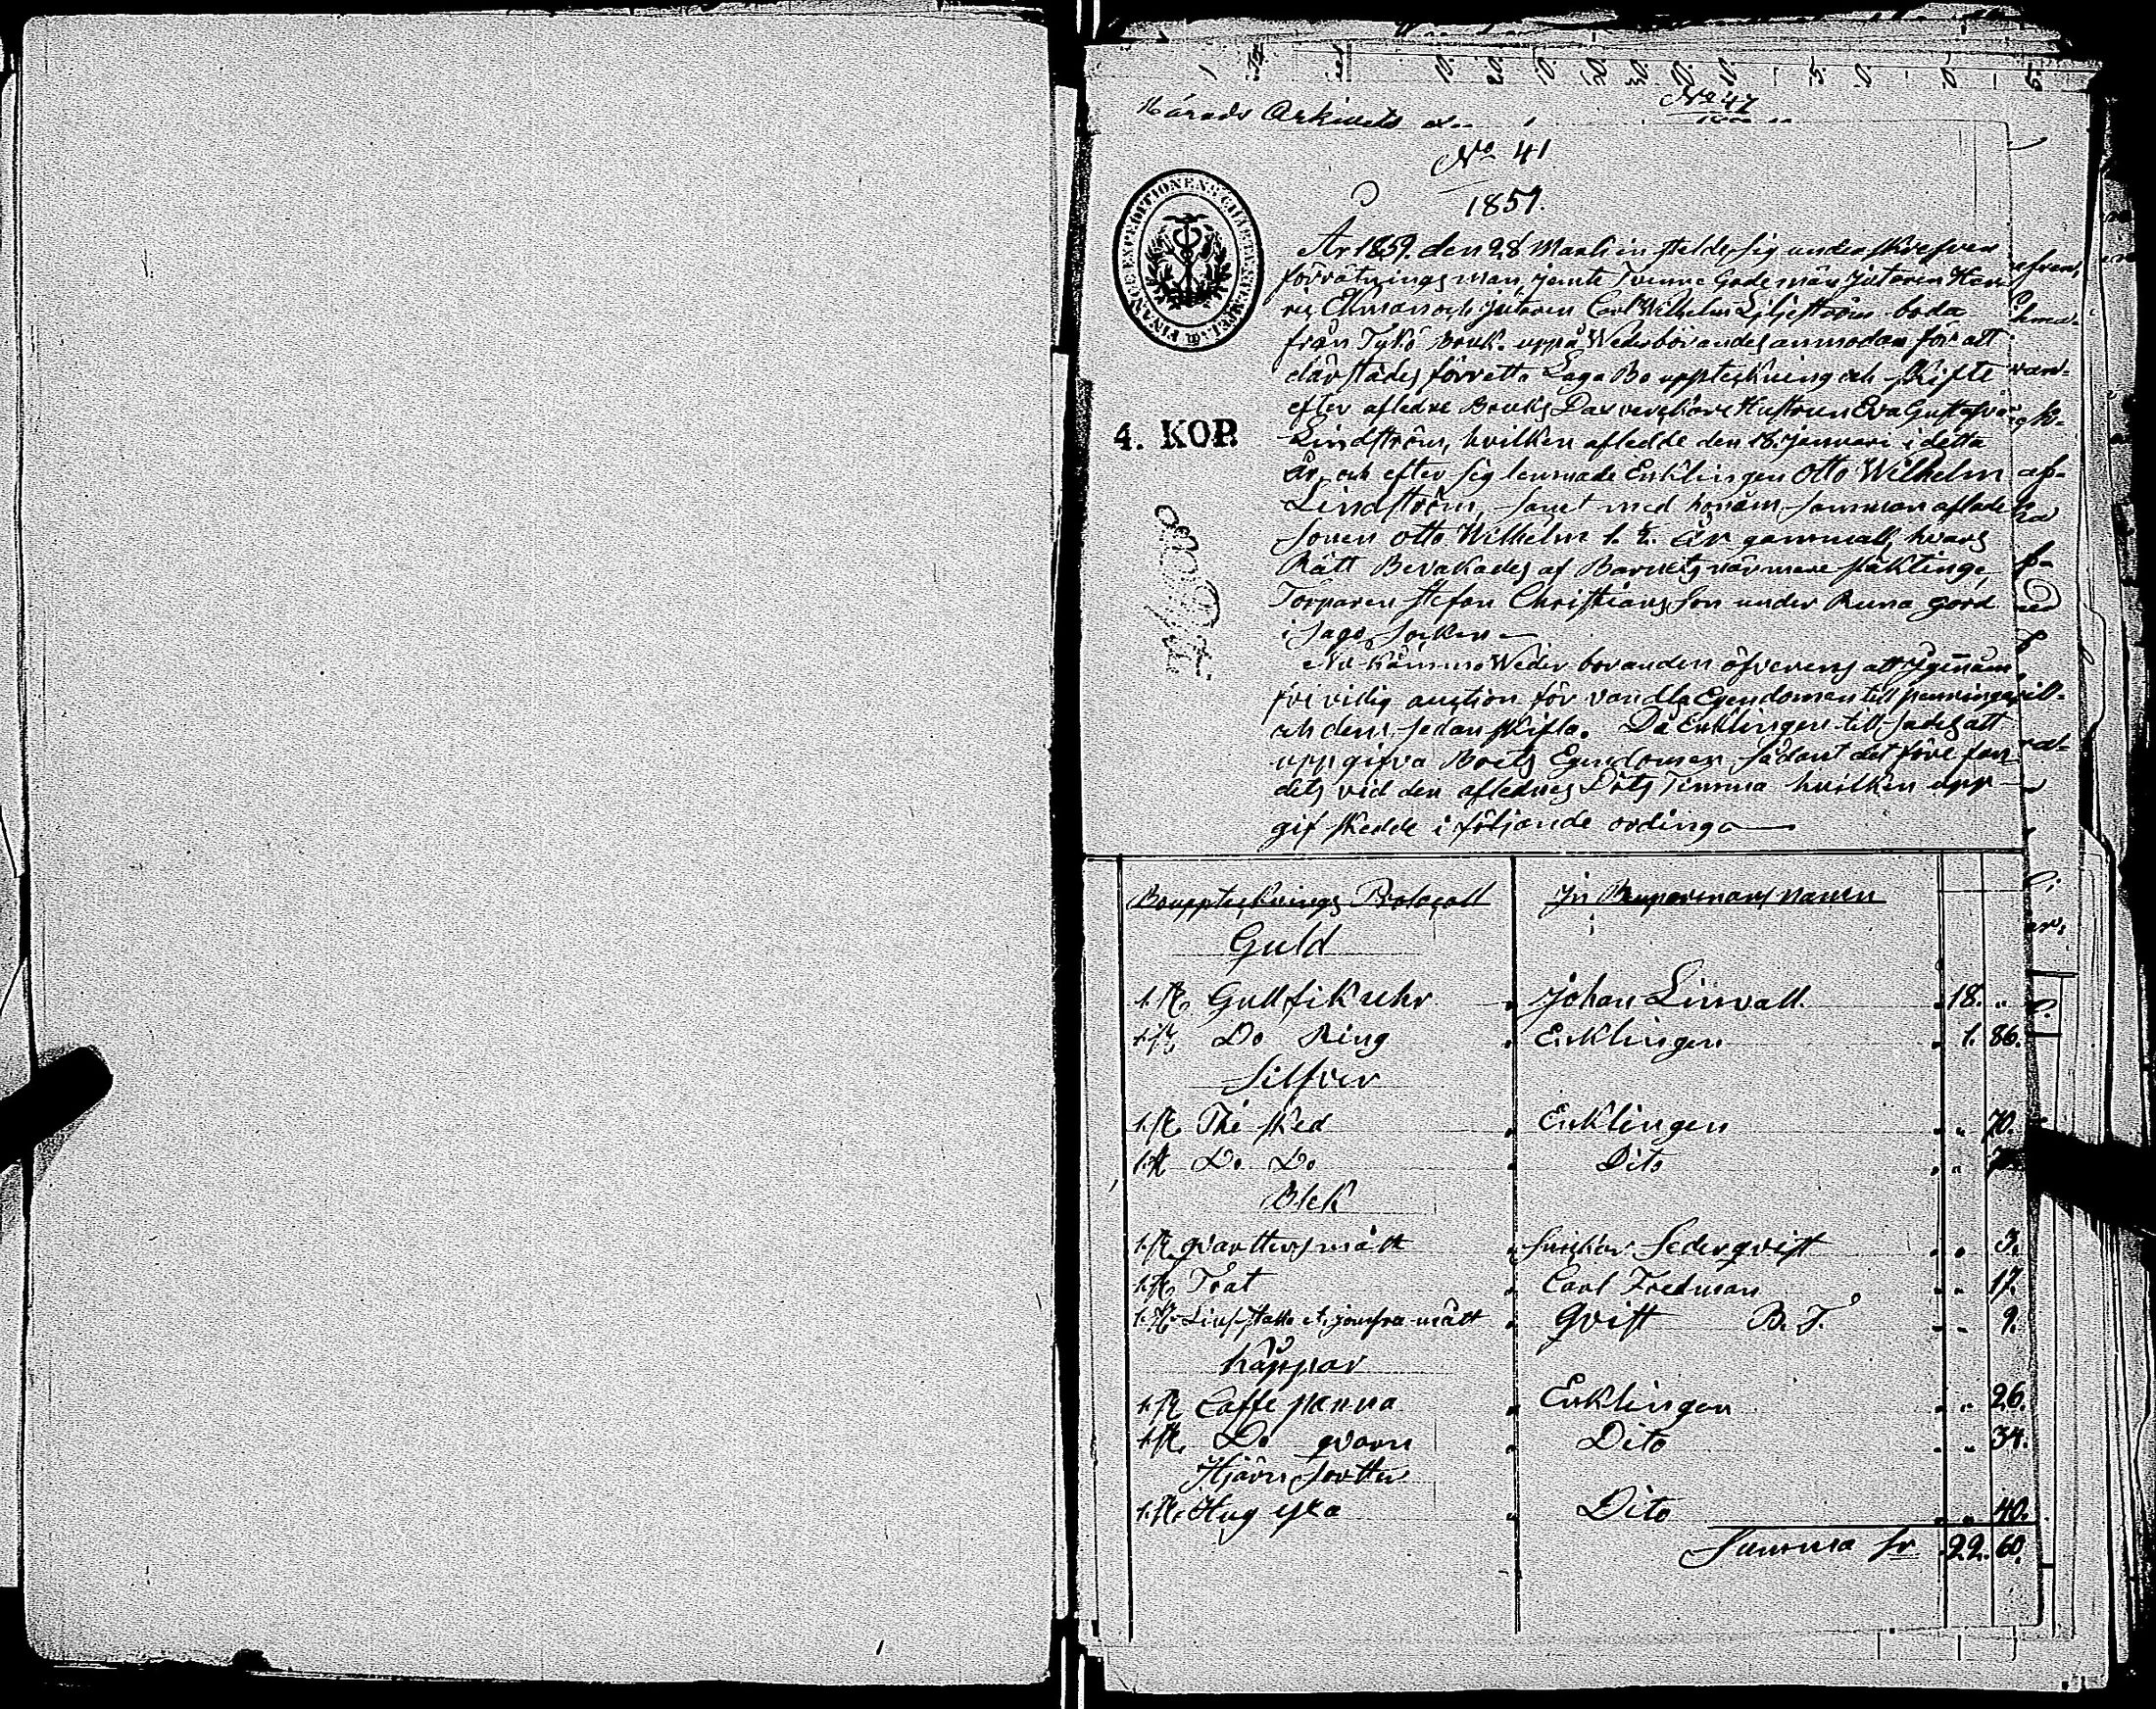 Härads Arkivets
No 47
No 41
1859.
FINANCE EXPEDITIONENS CHARTÆ
4. KOP.
År 1859. den 28 Martii in stelde sig underskrefven
förrätnings man, jemte Tvenne Gode män Gjutaren Hen
ric Ekman och gjutaren Carl Wilhelm Liljeström boda
från Tykö bruk. uppå Wederbörandes anmodan för att
därstädes förretta Laga Bo uppteckning och skifte
efter afledne Bruks Hustrun Eva Gustafva
Lindström, hvilken afledde den 18. Januari i detta
år, och efter sig lemnade Enklingen Otto Wilhelm
Lindström, samt med honom samman aflade
Sonen Otto Wilhelm 1. ½. År gammall, hvars
Rätt Bevakades af Barnets närmere släktinge,
Torparen Stefan Christians Son under Runa gord
i Sagu Socken
Nu kommo Weder boranden öfverens att igenom
fri villig auction för vandla Egendomen till penningar
och dem sedan skifta. Då Enklingen till sades att
uppgifva Boets Egendomen sådant det före fan
dets vid den aflednes Döts Timma hvilken upp
gif skedde i följande ordinga
Bouppteknings Protocoll
In Roparnans namn
Guld
1. st. Gull fik uhr Johan Linvall. 18. "
1. st. Do Ring Enklingen 1. 86.
Silfver
1. st. The sked Enklingen " 70.
1. st. Do Do Dito "
Blek
1. st. qvarters mått Snickar Sederqvist " 3.
1. st. Trat Carl Fredman " 17.
1. st. jomfru mått Qvist B. J. " 9.
Kåppar
1. st. Caffe panna Enklingen " 26.
1. st. Do qvarn Dito " 34.
Hjärn Sorter
1. st. Hug yxa Dito " 40.
Summa Sr 22. 60.